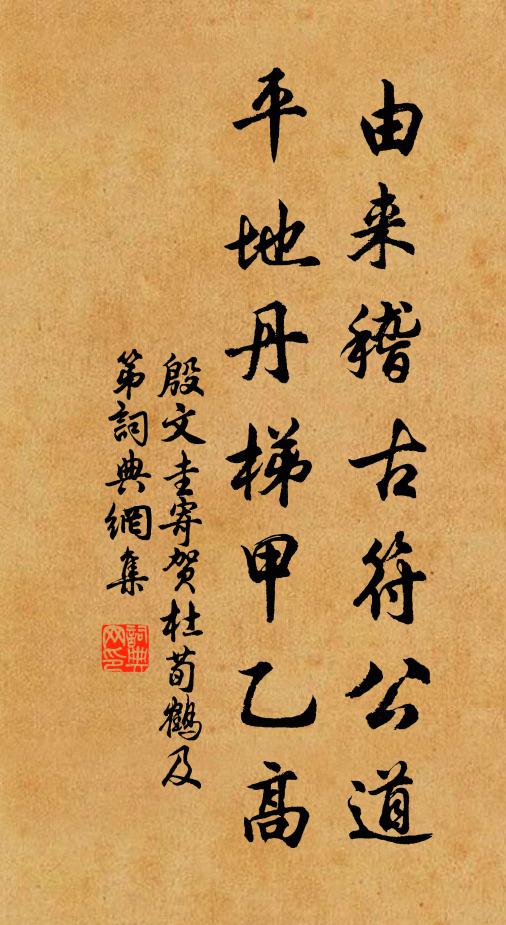 由来稽古符公道
平地丹梯甲乙高
殷文圭寄贺杜荀鶴及
第詞典網集
詞典
网印